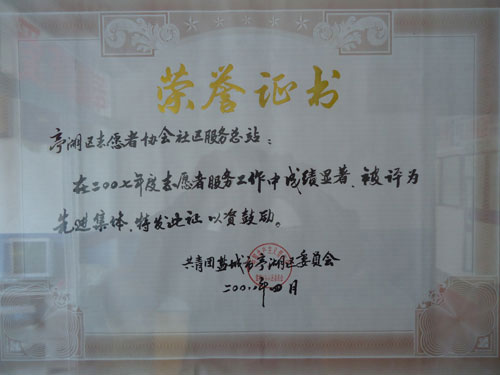 荣誉证书
亭湖区志愿者协会社区服务总站：
在二〇〇七年度志愿者服务工作中成绩显著，被评为
先进集体，特发此证，以资鼓励。
共青团盐城市亭湖区委员会
年四月